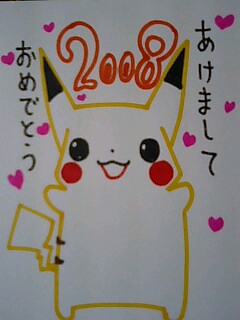 2008
あけまして
おめでとう